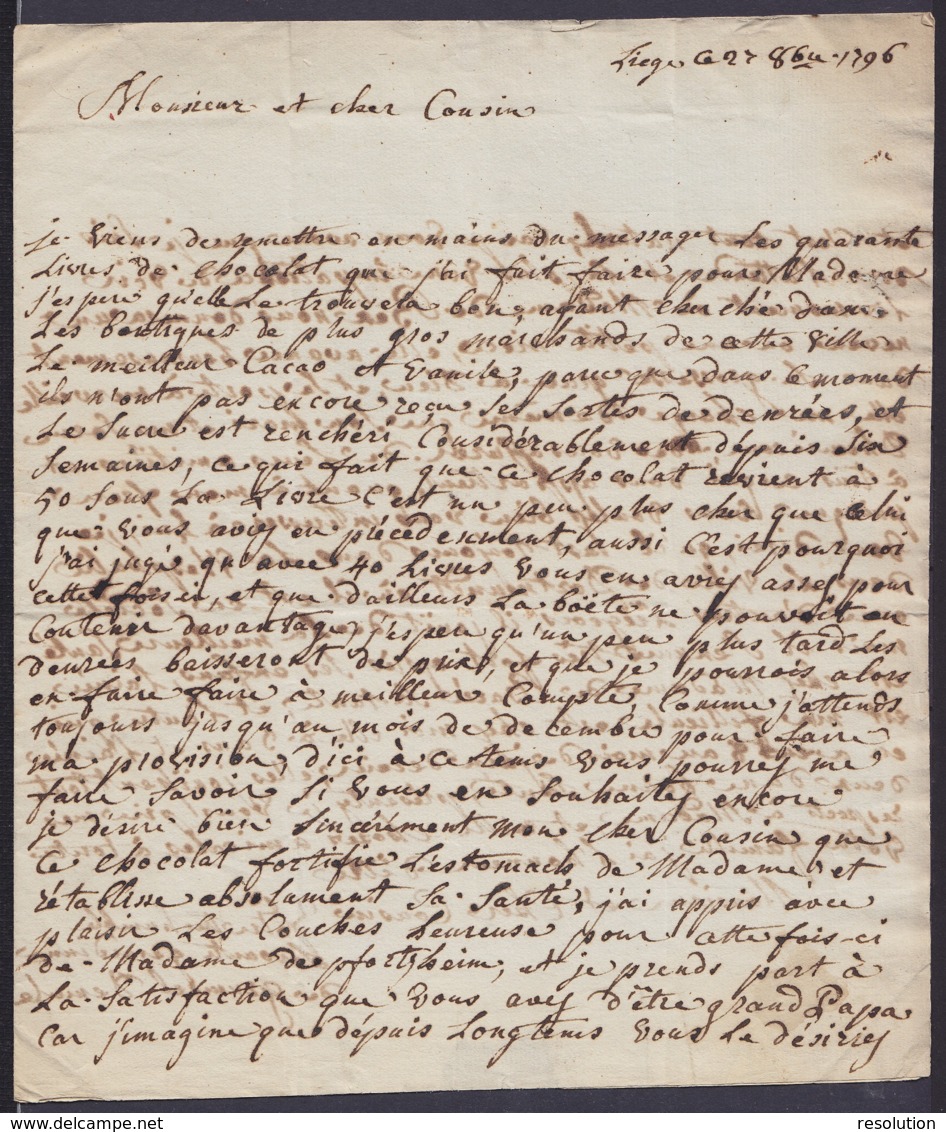 Liege ce 27 8bre 1796
Monsieur et cher Cousin
je viens de remettre en mains du messager les quarante
Livres de chocolat que j'ai fait faire pour Madame
j'espere qu'elle le trouvera bon, ajant cherché dans
Les boutiques de plus gros márchands de cette ville
Le meilleur Cacao et Vanile, parceque dans le moment
ils n'ont pas encore reçu ses sortes de denrées, et
Le sucre est renchéri Considérablement dépuis six
semaines, ce qui fait que ce chocolat revient à
50 sous La Livre c'est un peu plus cher que celui
que vous aviez eu précédemment, aussi c'est pourquoi
j'ai jugé qu'avec 40 Livres vous en aviez assez pour
cette fois ci, et que d'ailleurs La boëte ne pouvoit en
Contenir davantage, j'espere qu'un peu plus tard Les
denrées baisseront de prix, et que je pourrois alors
en faire faire à meilleur Compte, Comme j'attends
toujours jusqu'au mois de decembre pour faire
ma provision, d'ici à ce tems vous pourrez me
faire savoir si vous en souhaitez encore
je désire bien sincérement mon cher Cousin que
Ce chocolat fortifie L'estomach de Madame et
rétablisse absolument sa santé, j'ai appris avec
plaisir Les Couches heureuse pour cette fois-ci
de Madame de pfortzheim, et je prends part à
La satisfaction que vous avez d'être grand Papa
Car j'imagine que dépuis Longtems vous Le désiriez
resolution